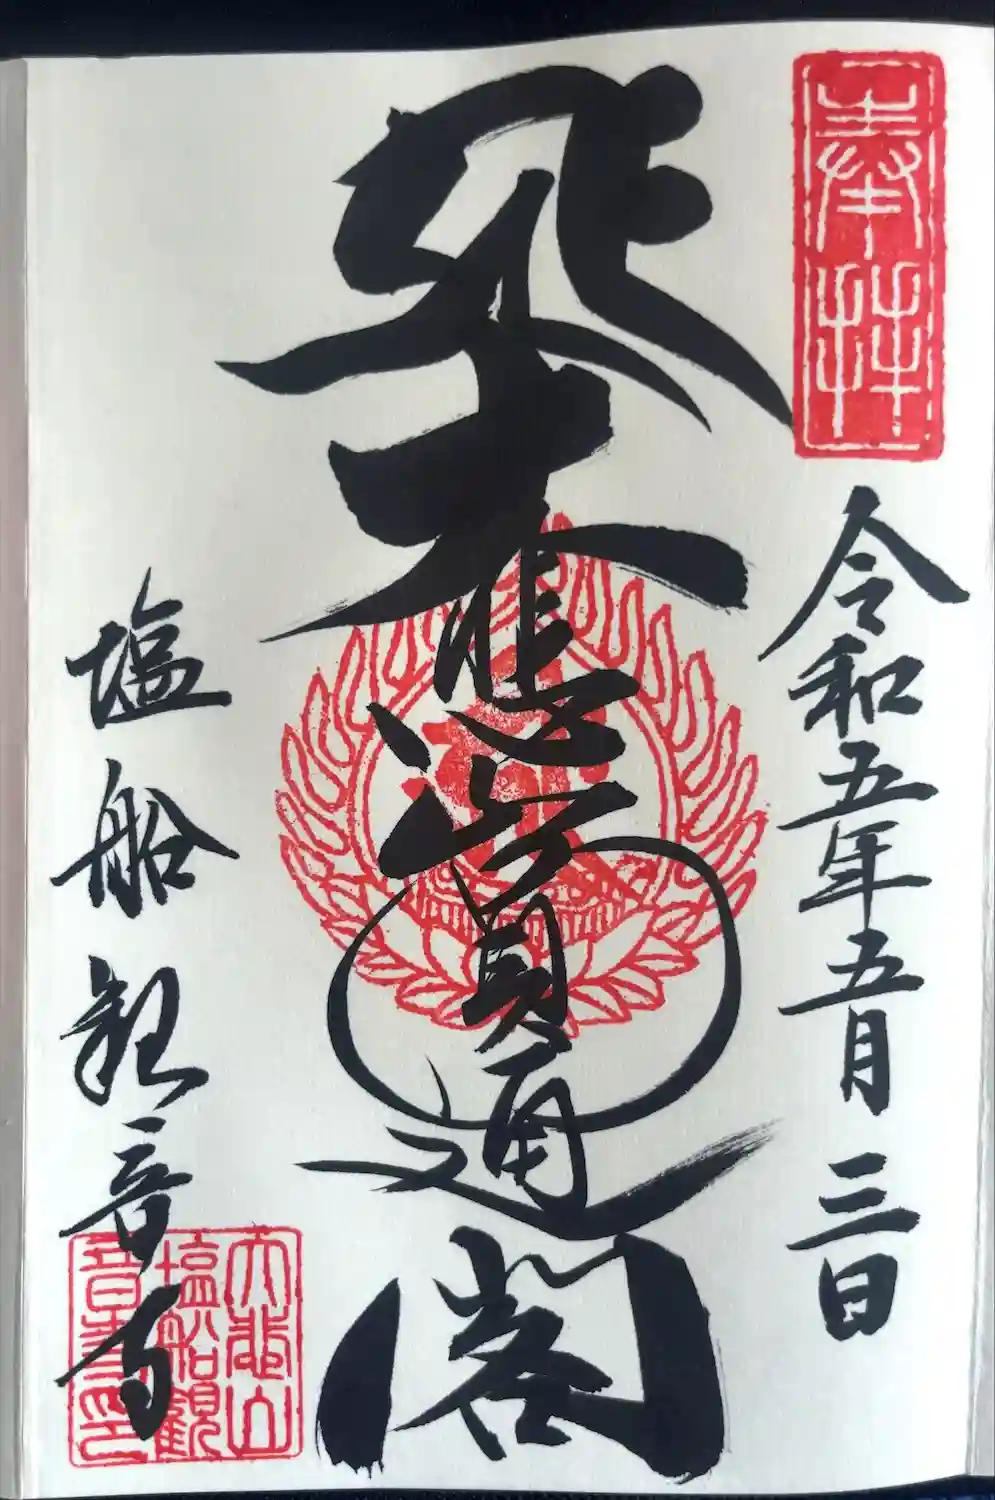 奉拝
令和五年五月三日
大悲圓通閣
塩船観音寺
大悲山
塩船観
音寺之印